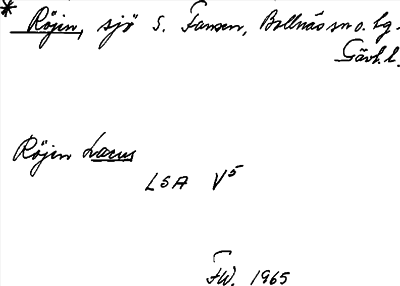 * Röjin, sjö S. Fansen, Bollnäs sn o. tg.
Gävl. l.
Röjen Lacus
LSA V5
FW. 1965